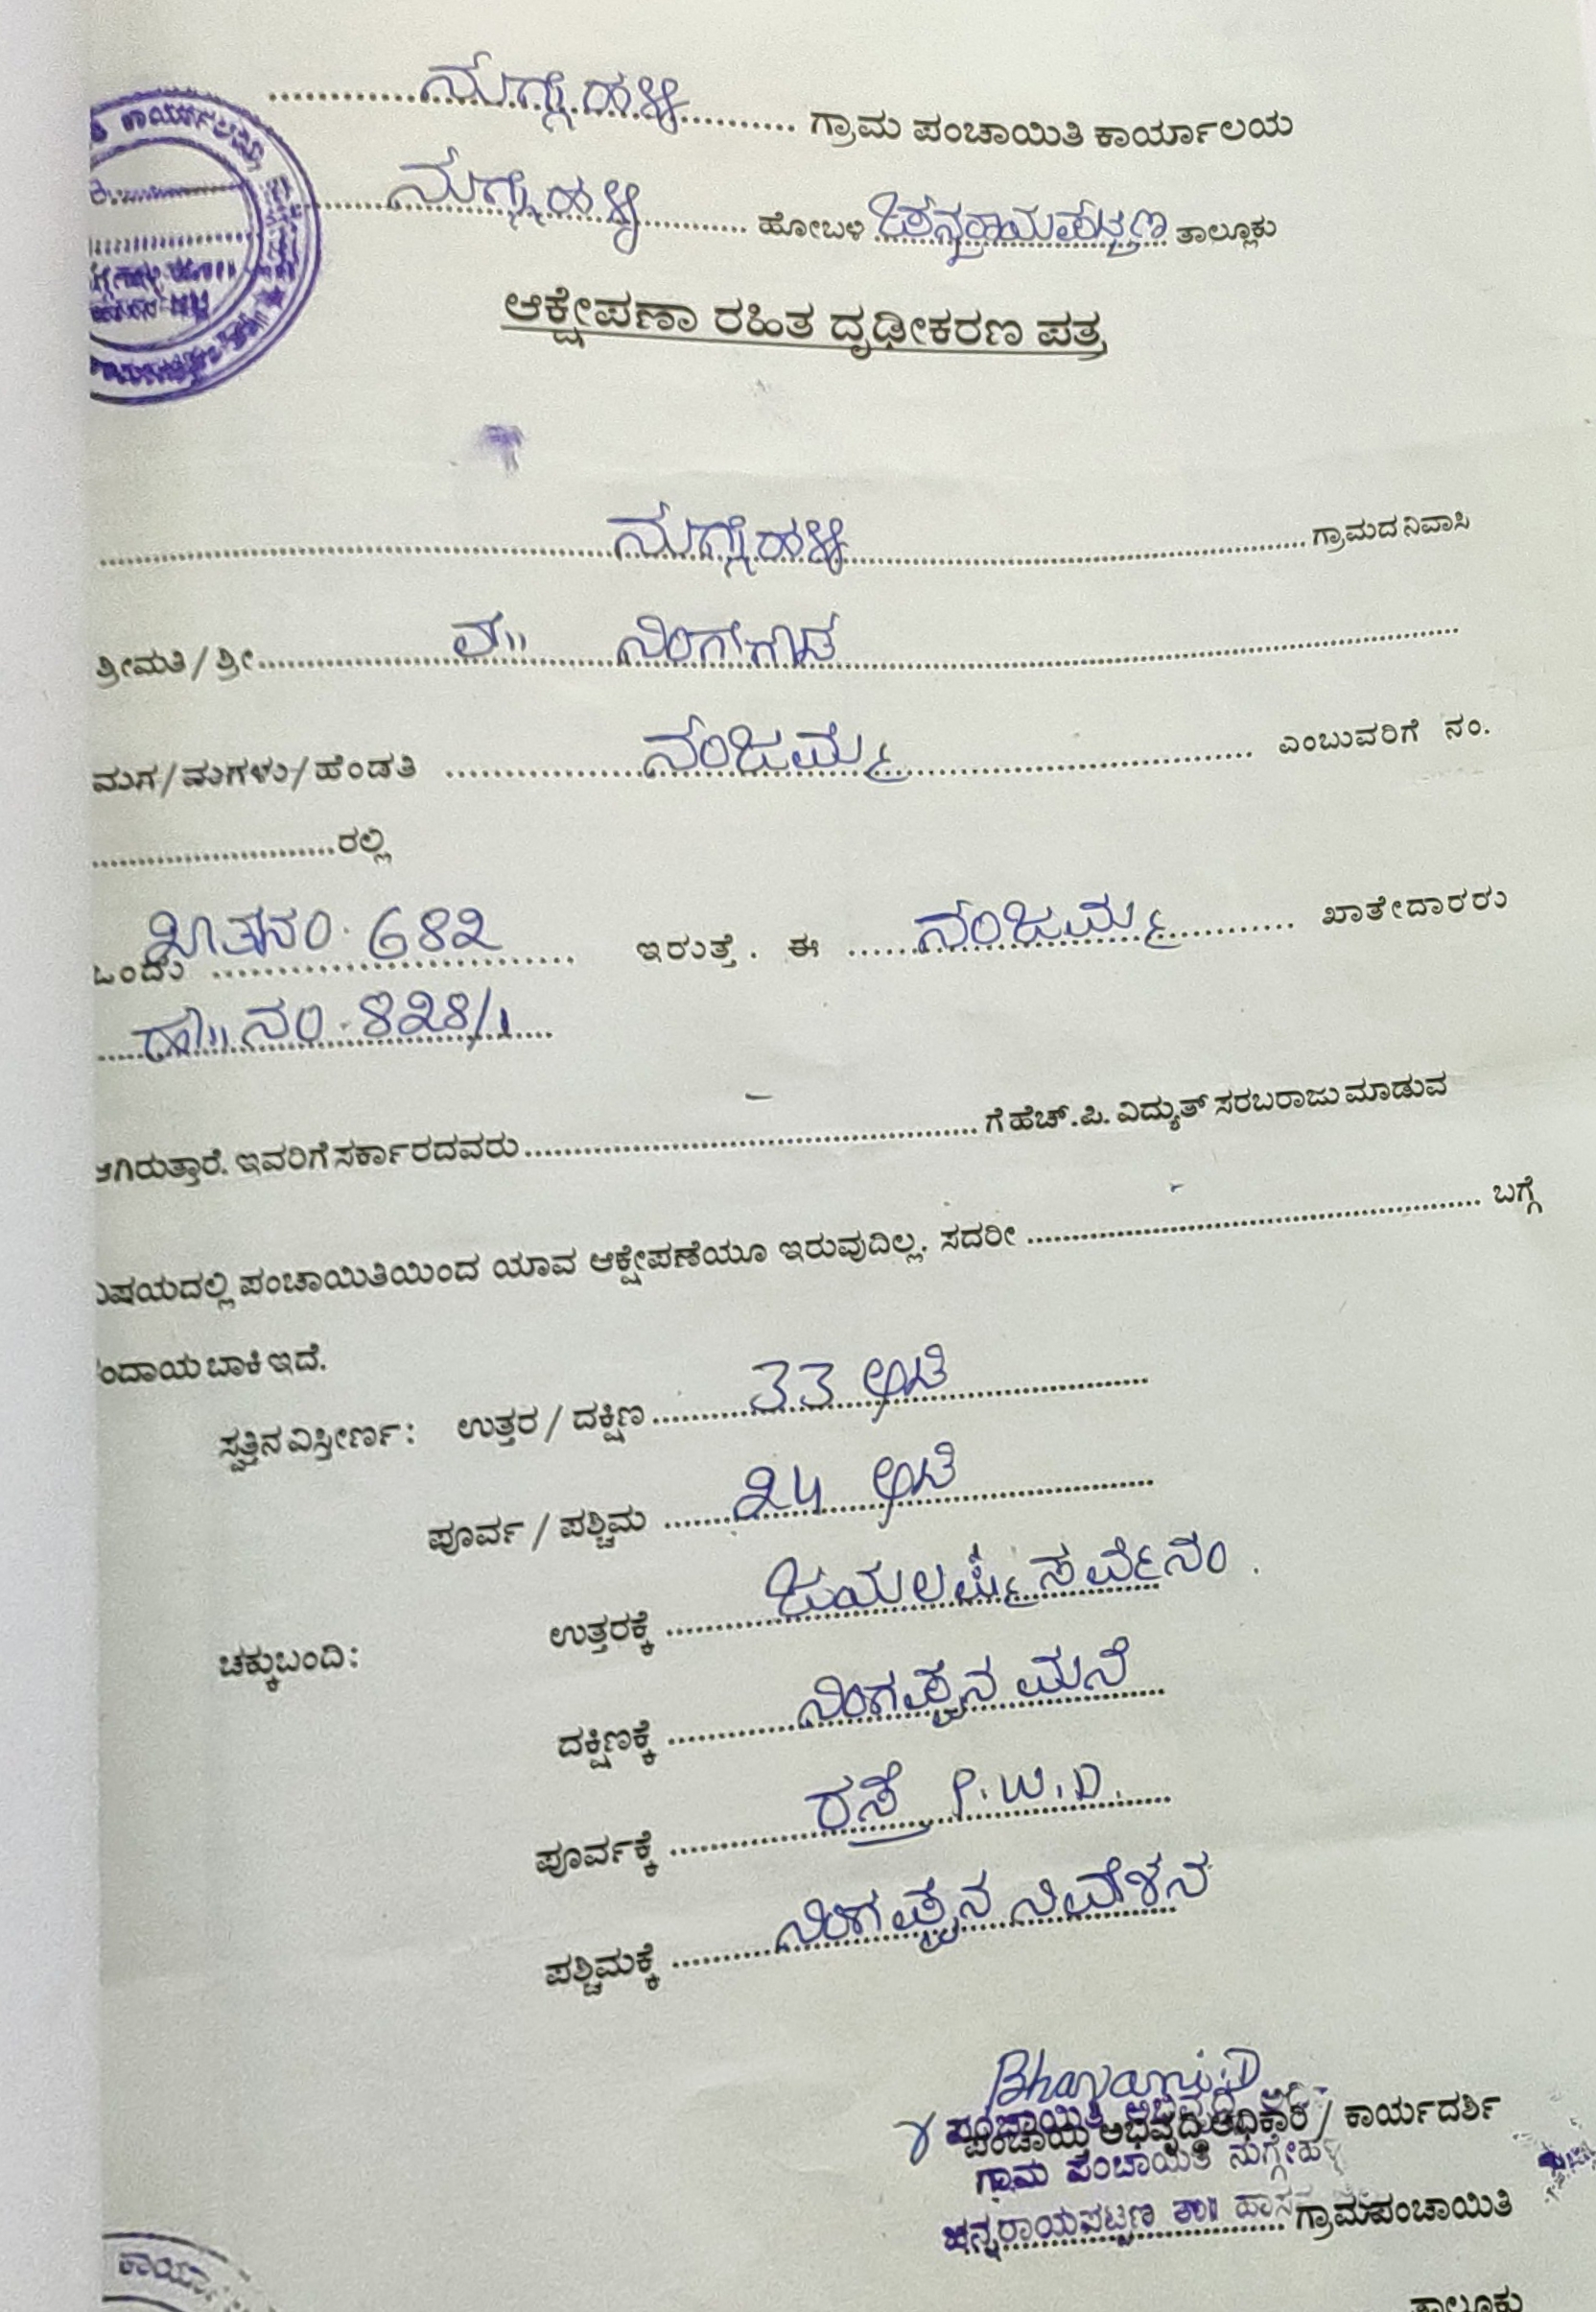 ನುಗ್ಗೇಹಳ್ಳಿ ಗ್ರಾಮ ಪಂಚಾಯಿತಿ ಕಾರ್ಯಾಲಯ
ನುಗ್ಗೇಹಳ್ಳಿ ಹೋಬಳಿ ಚನ್ನರಾಯಪಟ್ಟಣ ತಾಲ್ಲೂಕು
ಆಕ್ಷೇಪಣಾ ರಹಿತ ದೃಢೀಕರಣ ಪತ್ರ
ನುಗ್ಗೇಹಳ್ಳಿ ಗ್ರಾಮದ ನಿವಾಸಿ
ಶ್ರೀಮತಿ / ಶ್ರೀ ನಿಂಗೇಗೌಡ
ಮಗ / ಮಗಳು / ಹೆಂಡತಿ ನಂಜಮ್ಮ ಎಂಬುವರಿಗೆ ನಂ.
ರಲ್ಲಿ
ಒಂದು ಖಾತನಂ. 682 ಇರುತ್ತೆ. ಈ ನಂಜಮ್ಮ ಖಾತೇದಾರರು
ನಂ. 828/1
ಆಗಿರುತ್ತಾರೆ. ಇವರಿಗೆ ಸರ್ಕಾರದವರು - ಗೆ ಹೆಚ್.ಪಿ. ವಿದ್ಯುತ್ ಸರಬರಾಜು ಮಾಡುವ
ವಿಷಯದಲ್ಲಿ ಪಂಚಾಯಿತಿಯಿಂದ ಯಾವ ಆಕ್ಷೇಪಣೆಯೂ ಇರುವುದಿಲ್ಲ. ಸದರೀ - ಬಗ್ಗೆ
ಕಂದಾಯ ಬಾಕಿ ಇದೆ.
ಸ್ವತ್ತಿನ ವಿಸ್ತೀರ್ಣ : ಉತ್ತರ / ದಕ್ಷಿಣ 33 ಅಡಿ
ಪೂರ್ವ / ಪಶ್ಚಿಮ 24 ಅಡಿ
ಚಕ್ಕುಬಂದಿ : ಉತ್ತರಕ್ಕೆ ಜಯಲಕ್ಷ್ಮಿ ಸರ್ವೆನಂ.
ದಕ್ಷಿಣಕ್ಕೆ ನಿಂಗಪ್ಪನ ಮನೆ
ಪೂರ್ವಕ್ಕೆ ರಸ್ತೆ P.W.D.
ಪಶ್ಚಿಮಕ್ಕೆ ನಿಂಗಪ್ಪನ ನಿವೇಶನ
Bhavani.D
ಪಂಚಾಯ್ತಿ ಅಭಿವೃದ್ಧಿ ಅಧಿಕಾರಿ / ಕಾರ್ಯದರ್ಶಿ
ಗ್ರಾಮ ಪಂಚಾಯಿತಿ ನುಗ್ಗೇಹಳ್ಳಿ
ಚನ್ನರಾಯಪಟ್ಟಣ ತಾ॥ ಹಾಸನ
ಗ್ರಾಮಪಂಚಾಯಿತಿ
ತಾಲ್ಲೂಕು